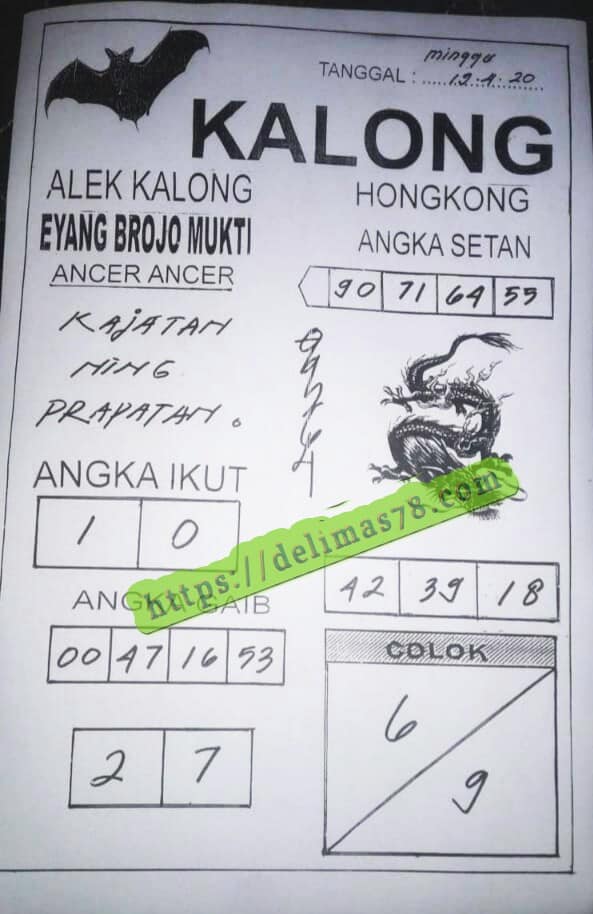 minggu
TANGGAL : 12-4-20
KALONG
ALEK KALONG
EYANG BROJO MUKTI
ANCER ANCER
KAJATAN
NING
PRAPATAN.
HONGKONG
ANGKA SETAN
90 71 64 55
ANGKA IKUT
1 0
https://delimas78.com
42 39 18
00 47 16 53
2 7
COLOK
6
9